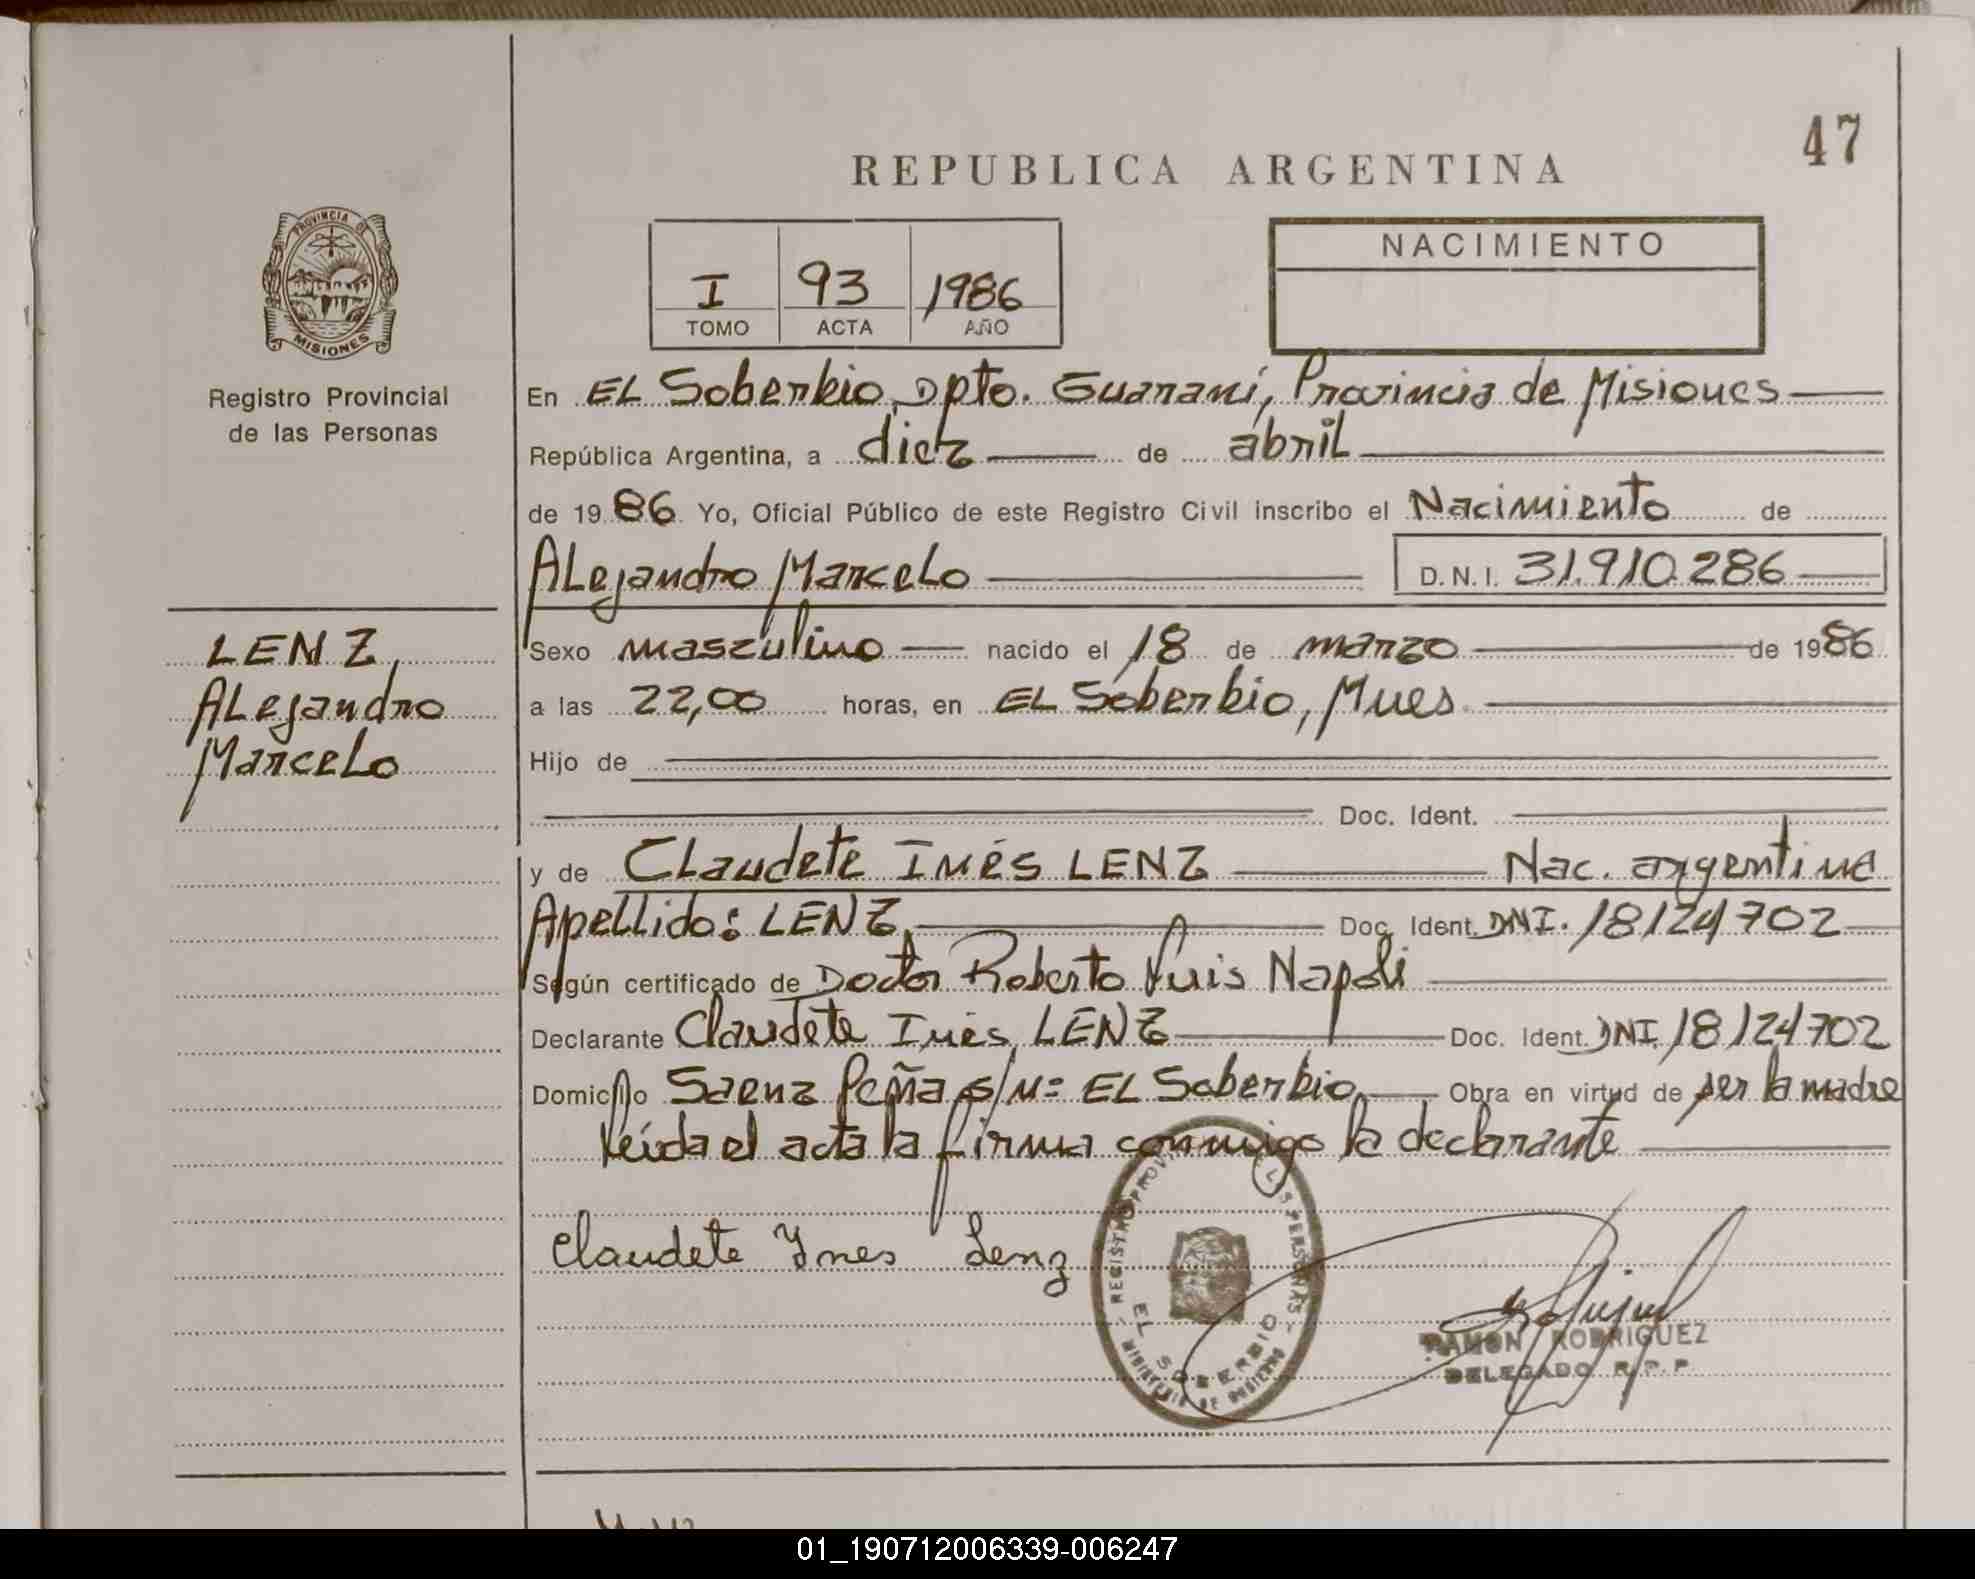 47
REPUBLICA ARGENTINA
PROVINCIA DE
MISIONES
Registro Provincial
de las Personas
I 93 1986
TOMO ACTA AÑO
NACIMIENTO
En EL Soberbio, Dpto. Guaraní, Provincia de Misiones
República Argentina, a diez de abril
de 1986 Yo, Oficial Público de este Registro Civil inscribo el Nacimiento de
Alejandro Marcelo D.N.I. 31.910.286
LENZ,
Alejandro
Marcelo
Sexo masculino nacido el 18 de marzo de 1986
a las 22,00 horas, en EL Soberbio, Mnes
Hijo de
Doc. Ident.
y de Claudete Inés LENZ Nac. argentina
Apellido: LENZ Doc. Ident. DNI. 18124702
Según certificado de Doctor Roberto Luis Napoli
Declarante Claudete Inés LENZ Doc. Ident. DNI. 18124702
Domicilio Saenz Peña s/n= EL Soberbio Obra en virtud de ser la madre
Leída el acta la firma conmigo la declarante
Claudete Ynes Lenz
REGISTRO PROV L S PERSONAS
EL SOBERBIO
MINISTERIO DE GOBIERNO
RAMON RODRIGUEZ
DELEGADO R.P.P.
01_190712006339-006247